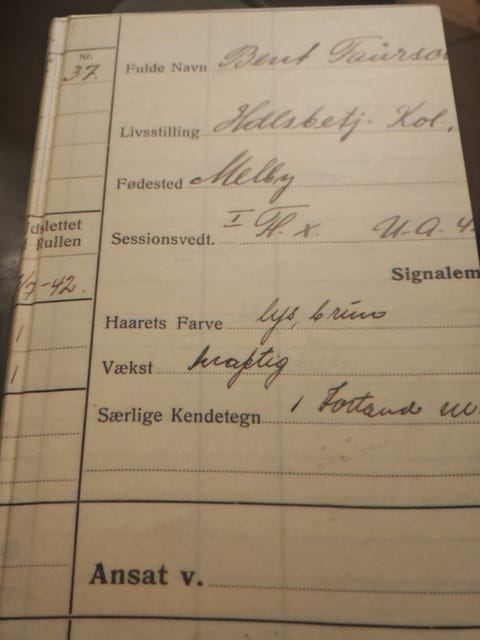 Nr.
37.
Fulde Navn Bent
Livsstilling Hdlsbetj. Kol.
Fødested Melby
dslettet
Rullen
Sessionsvedt. I U.A.
Signalem
7-42.
Haarets Farve lys, brun
1
Vækst kraftig
1
Særlige Kendetegn 1 Fortand
Ansat v.